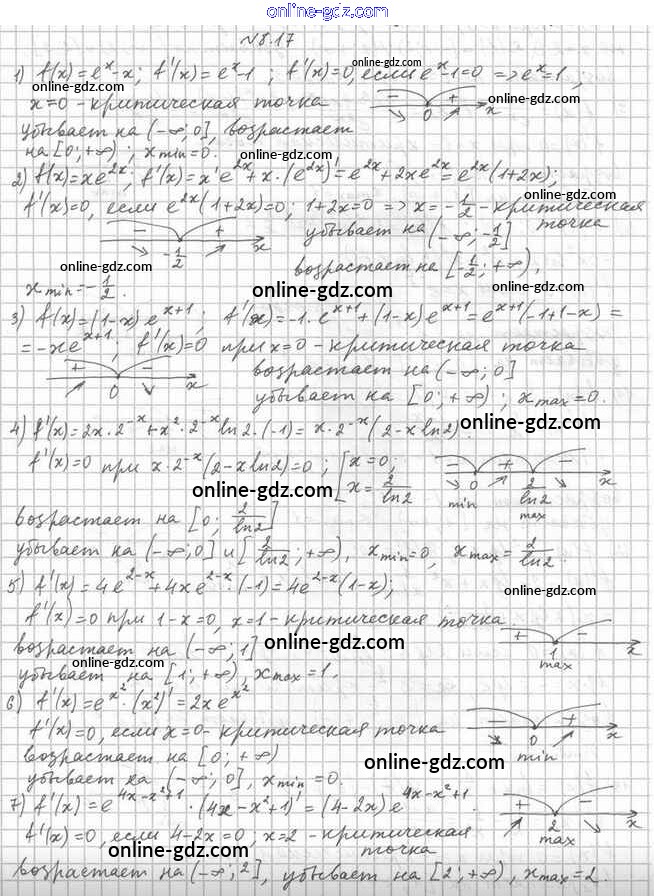 online-gdz.com
№8.17
online-gdz.com
1) f(x)=eˣ-x; f'(x)=eˣ-1; f'(x)=0, если eˣ-1=0 => eˣ=1;
x=0 - критическая точка
- + 0 x
online-gdz.com
online-gdz.com
убывает на (-∞; 0], возрастает
на [0; +∞); x min=0.
online-gdz.com
2) f(x)=xe²ˣ; f'(x)=x'e²ˣ+x·(e²ˣ)'=e²ˣ+2xe²ˣ=e²ˣ(1+2x);
online-gdz.com
f'(x)=0, если e²ˣ(1+2x)=0; 1+2x=0 => x=-1/2 - критическая
точка
- + -1/2 x
убывает на (-∞; -1/2]
online-gdz.com
online-gdz.com
возрастает на [-1/2; +∞),
x min=-1/2.
online-gdz.com
3) f(x)=(1-x)eˣ⁺¹; f'(x)=-1·eˣ⁺¹+(1-x)eˣ⁺¹=eˣ⁺¹(-1+1-x)=
=-xeˣ⁺¹; f'(x)=0 при x=0 - критическая точка
online-gdz.com
+ - 0 x
возрастает на (-∞; 0]
убывает на [0; +∞); x max=0.
online-gdz.com
4) f'(x)=2x·2⁻ˣ+x²·2⁻ˣln2·(-1)=x·2⁻ˣ(2-xln2).
f'(x)=0 при x·2⁻ˣ(2-xln2)=0; [x=0; x=2/ln2
- + - 0 2/ln2 x
min max
online-gdz.com
возрастает на [0; 2/ln2]
убывает на (-∞; 0] и [2/ln2; +∞), x min=0, x max=2/ln2.
5) f'(x)=4e²⁻ˣ+4xe²⁻ˣ·(-1)=4e²⁻ˣ(1-x);
online-gdz.com
f'(x)=0 при 1-x=0, x=1 - критическая точка
+ - 1 x
max
возрастает на (-∞; 1]
online-gdz.com
online-gdz.com
убывает на [1; +∞), x max=1.
6) f'(x)=e^x²·(x²)'=2xe^x²
f'(x)=0, если x=0 - критическая точка
- + 0 x
min
возрастает на [0; +∞)
online-gdz.com
убывает на (-∞; 0], x min=0.
online-gdz.com
7) f'(x)=e^4x-x²+1·(4x-x²+1)'=(4-2x)e^4x-x²+1.
+ - 2 x
max
f'(x)=0, если 4-2x=0, x=2 - критическая
точка
online-gdz.com
возрастает на (-∞; 2], убывает на [2; +∞), x max=2.